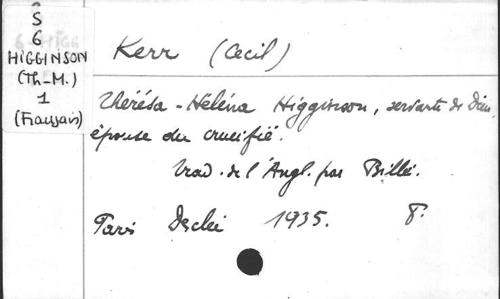 S
6
HIGGINSON
(Th-M.)
1
(Français)
Kerr (Cecil)
Thérésa-Héléna Higginson, servante de Dieu,
épouse du crucifié.
Trad. de l'Angl. par Billé.
Paris Desclée 1935. 8°.